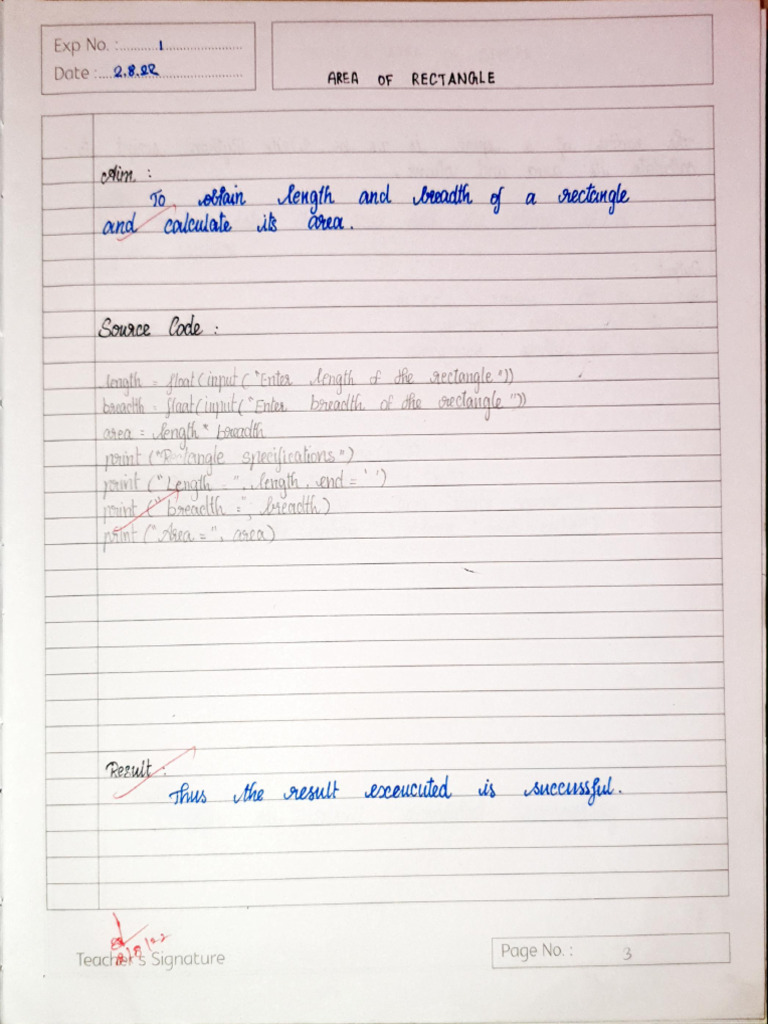 Exp No. : 1
Date : 2.8.22
AREA OF RECTANGLE
Aim :
To obtain length and breadth of a rectangle
and calculate its area.
Source Code :
length = float(input("Enter length of the rectangle"))
breadth = float(input("Enter breadth of the rectangle"))
area = length * breadth
print ("Rectangle specifications")
print ("Length = ", length, end = ' ')
print (" breadth =", breadth)
print ("Area = ", area)
Result :
Thus the result exeucuted is successful.
Teacher's Signature
Page No. : 3